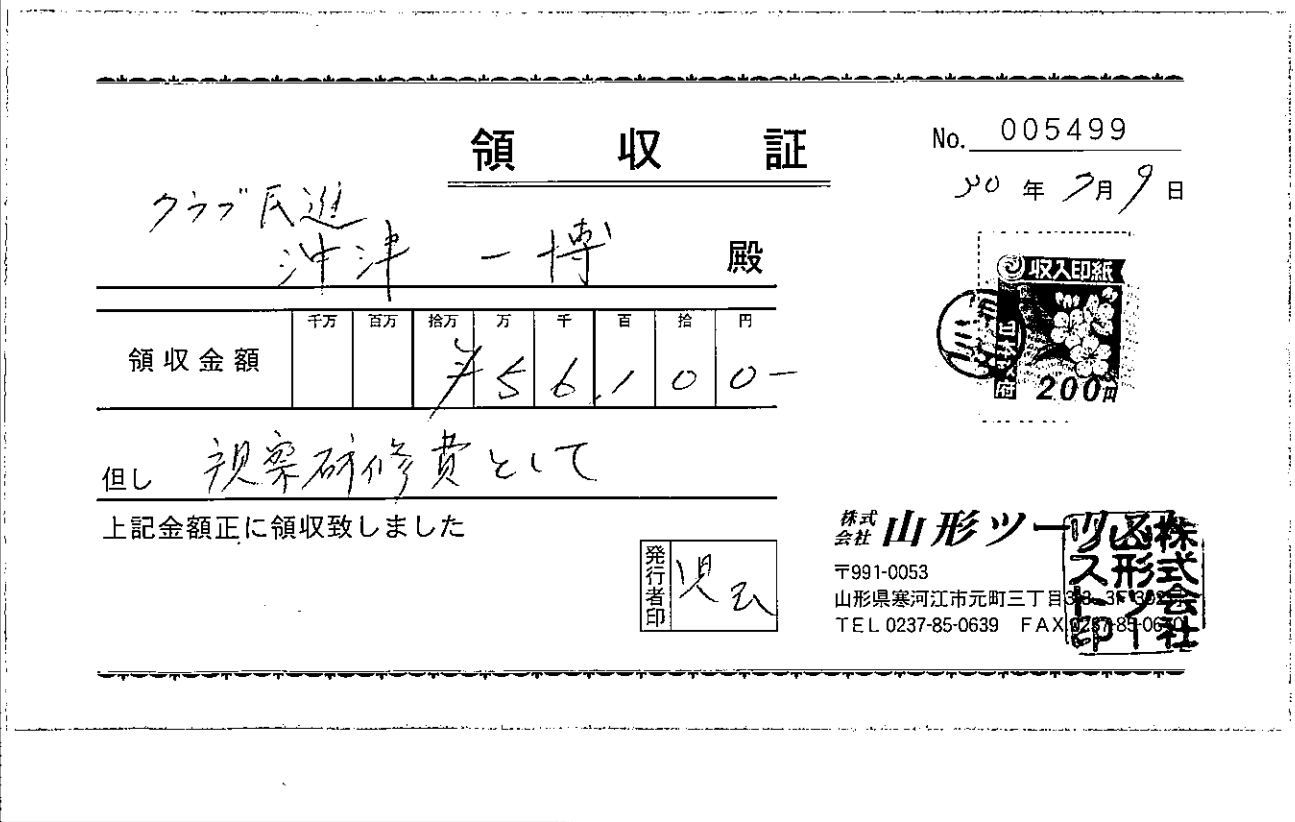 領収証
No. 005499
30年7月9日
クラブ民進
沖津 一博 殿
収入印紙
200円
千万 百万 拾万 万 千 百 拾 円
領収金額 ¥56,100-
但し 視察研修費として
上記金額正に領収致しました
発行者印
株式会社 山形ツーリスト
〒991-0053
山形県寒河江市元町三丁目
TEL 0237-85-0639 FAX 0237-85-0640
株式会社山形ツーリスト印